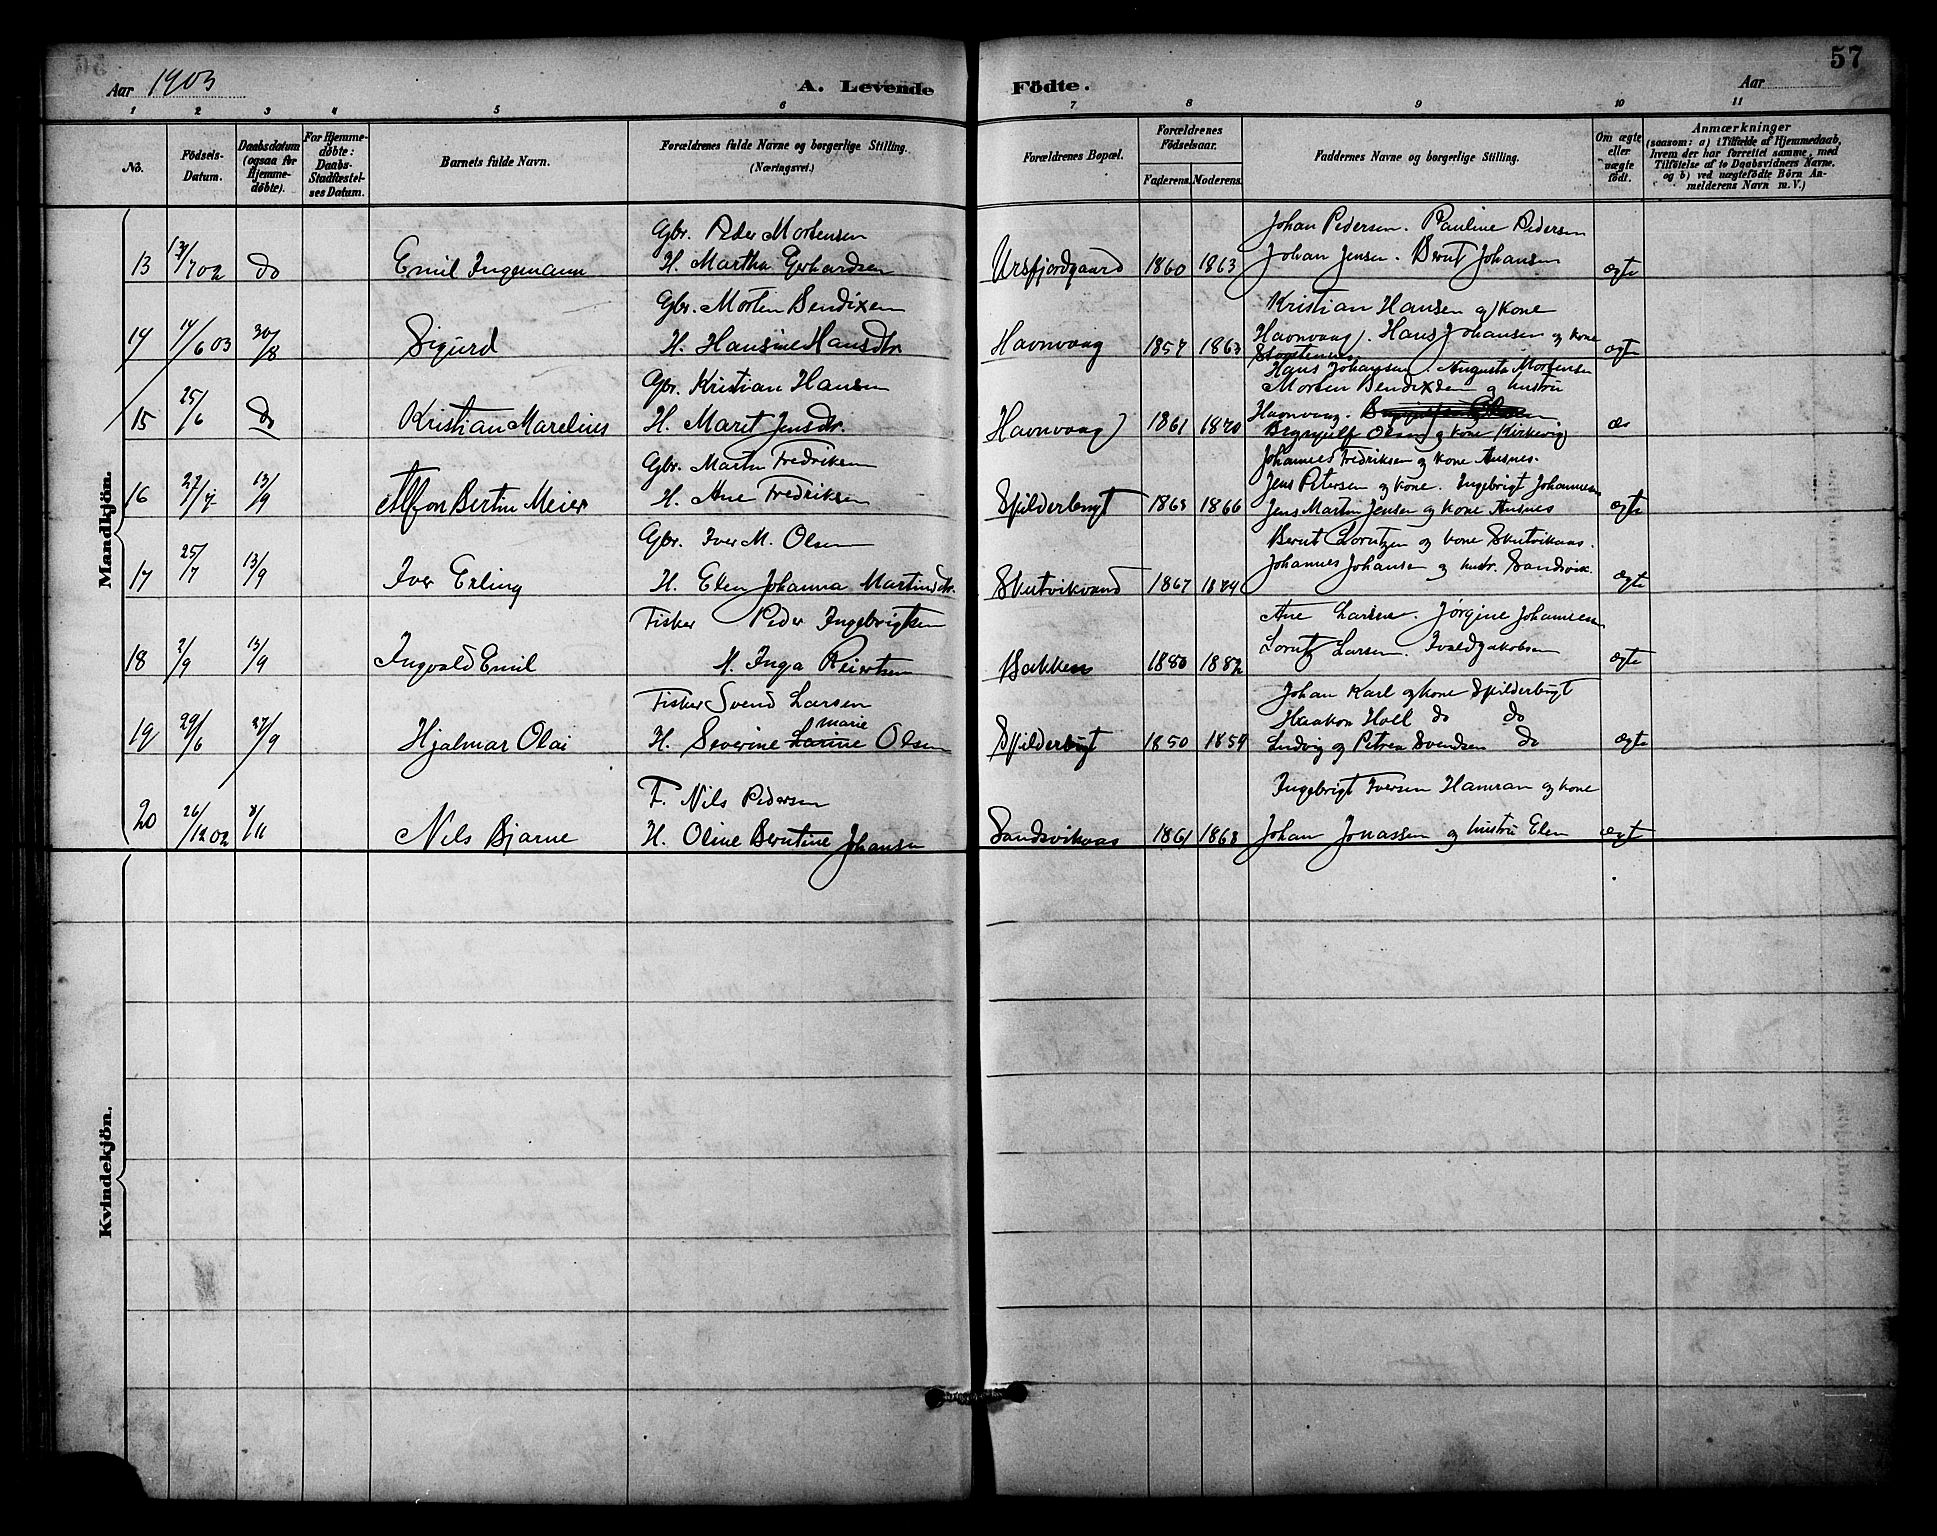 Aar 1903
A. Levende Födte.
Aar
57
1 2 3 4 5 6 7 8 9 10 11
No.
Födsels-Datum.
Daabsdatum (ogsaa for Hjemmedöbte).
For Hjemmedöbte: Daabs-Stadfæstelses Datum.
Barnets fulde Navn.
Forældrenes fulde Navne og borgerlige Stilling.
(Næringsvei.)
Forældrenes Bopæl.
Forældrenes Födselsaar.
Faderens. Moderens.
Faddernes Navne og borgerlige Stilling.
Om ægte eller uægte födt.
Anmærkninger
(saasom: a) i Tilfælde af Hjemmedaab, hvem der har forrettet samme, med Tilföielse af to Daabsvidners Navne, og b) ved uægtefödte Börn Anmelderens Navn m. V.)
Mandkjön.
Gbr. Peder Mortensen Johan Pedersen. Pauline Pedersen
13 13/7 02 do Emil Ingemann H. Martha Gerhardsen Ursfjordgaard 1860 1863 Johan Jensen. Bernt Johansen ægte
Gbr. Morten Bendixen Kristian Hansen og Kone
14 14/6 03 30/8 Sigurd H. Hansine Hansdtr Havnvaag 1857 1863 Havnvaag. Hans Johansen og Kone ægte
Gbr. Kristian Hansen Hans Johansen. Augusta Mortensen
Morten Bendixsen og hustru
15 25/6 do Kristian Marelius H. Marit Jensdtr. Havnvaag 1861 1870 Havnvaag.
Olsen og Kone Kirkevig æ
Gbr. Martin Fredriksen Johannes Fredriksen og Kone Ausnes.
Jens Petersen og Kone. Ingebrigt Johannesen
16 27/7 13/9 Alfon Bertin Meier H. Ane Fredriksen Spilderbugt 1865 1866 Jens Martin Jensen og Kone Ausnes ægte
Gbr. Iver M. Olsen Bernt Lorntzen og Kone Skutvikaas.
17 25/7 13/9 Iver Erling H. Elen Johanna Martinsdtr. Skutvikvand 1867 1874 Johannes Johansen og hustr. Sandsvik. ægte
Fisker Peder Ingebrigtsen Ane Larsen. Jørgine Johannesen
18 2/9 13/9 Ingvald Emil H. Inga Reiertsen Bakken 1880 1882 Lorntz Larsen. Ivald Jakobsen ægte
Fisker Svend Larsen Johan Karl og Kone Spilderbugt
marie Haakon Holl do do
19 29/6 27/9 Hjalmar Olai H. Severine Larine Olsen Spilderbugt 1850 1859 Ludvig og Petrea Svendsen do ægte
F. Nils Pedersen Ingebrigt Iversen Hamran og Kone
20 26/12 02 8/11 Nils Bjarne H. Oline Berntine Johansen Sandsvikaas 1861 1868 Johan Jonassen og hustru Elen ægt
Kvindekjön.